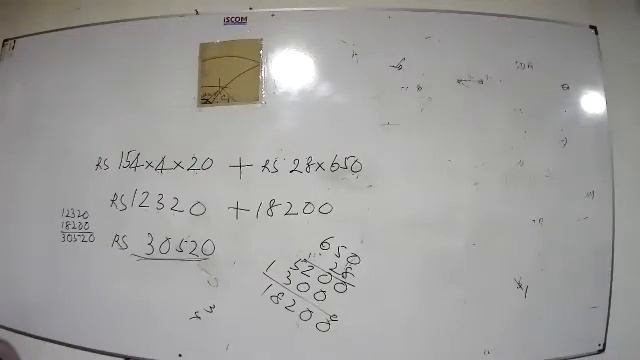 iSCOM
RS 154×4×20 + RS 28×650
RS 12320 + 18200
12320
18200
30520
RS 30520
650
5200
13000
18200